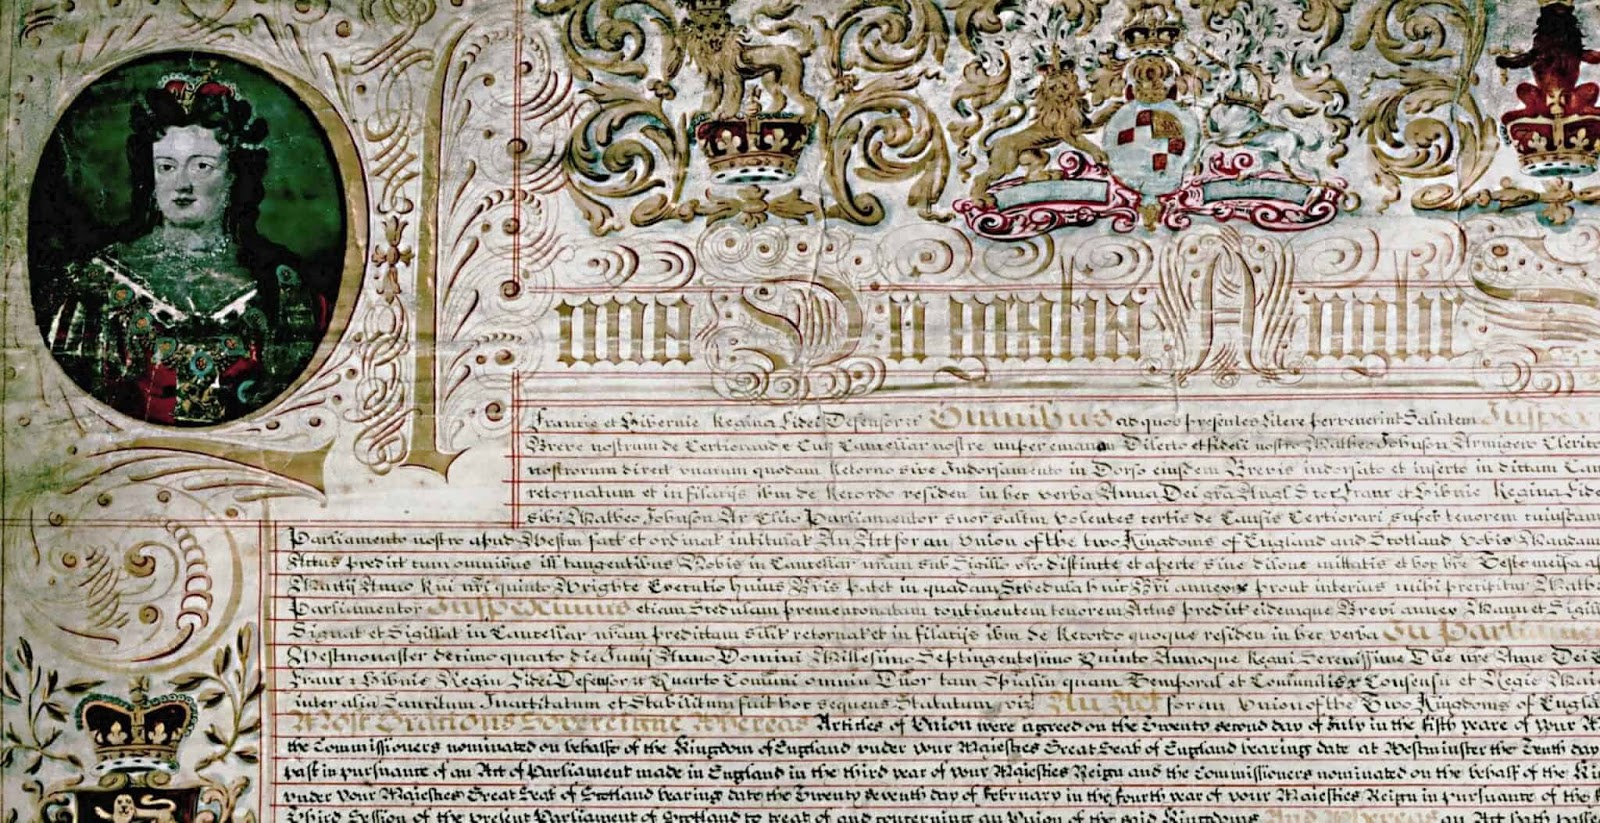 Anna Dei gratia Anglie S
Francie et Hibernie Regina Fidei Defensor &c Omnibus ad quos presentes Litere pervenerint Salutem Inspex
Breve nostrum de Certiorand e Cur Cancellar nostre nuper emanan Dilecto et fideli nostro Matheo Johnson Armigero Clerico
nostrorum direct unacum quodam Retorno sive Indorsamento in Dorso eiusdem Brevis indorsato et inserto in dictam Can
retornatum et in filacijs ibm de Recordo residen in hec verba Anna Dei grã Angl Scoc Franc et Hibnie Regina Fidei
sibi Matheo Johnson Ar Clico Parliamentor suor saltm Volentes certis de Causis Certiorari super tenorem cuiusdam
Parliamento nostro apud Westm fact et ordinat intitulat An Act for an Union of the two Kingdoms of England and Scotland vobis Mandam
Actus predict cum omnibus ill tangentibus Nobis in Cancellar nram sub Sigillo vro distincte et aperte sine dilone mittatis et hoc bre Teste meipsa ap
Martij Anno Rni nri quinto Wrighte Executio huius Bris patet in quadam Schedula huic Bri annex prout interius mihi precipitur Math
Parliamentor Inspeximus etiam Scedulam prementionatam continentem tenorem Actus predict eidemque Brevi annex Manu et Sigill
Signat et Sigillat in Cancellar nram predictam similit retornat et in filacijs ibm de Recordo quoque residen in hec verba In Parliame
Westmonaster decimo quarto die Junij Anno Domini Millesimo Septingentesimo Quinto Annoque Regni Serenissime Dne nre Anne Dei
Franc & Hibnie Regin Fidei Defensor &c Quarto Comuni omniu Dnor tam Spiritualiu quam Temporal et Comunit Consensu et Regie Maie
inter alia Sancitum Inactitatum et Stabilitum fuit hoc sequens Statutum viz An Act for an Union of the Two Kingdoms of Engla
Most Gracious Sovereigne Whereas Articles of Union were agreed on the Twenty second day of July in the fifth yeare of your M
the Commissioners nominated on behalfe of the Kingdom of England under your Majesties Great Seal of England bearing date at Westminster the Tenth day
past in pursuance of an Act of Parliament made in England in the third year of your Majesties Reign and the Commissioners nominated on the behalf of the Ki
under your Majesties Great Seal of Scotland bearing date the Twenty seventh day of February in the fourth year of your Majesties Reign in pursuance of the
Third Session of the present Parliament of Scotland to treat of and concerning an Union of the said Kingdoms And Whereas an Act hath passe